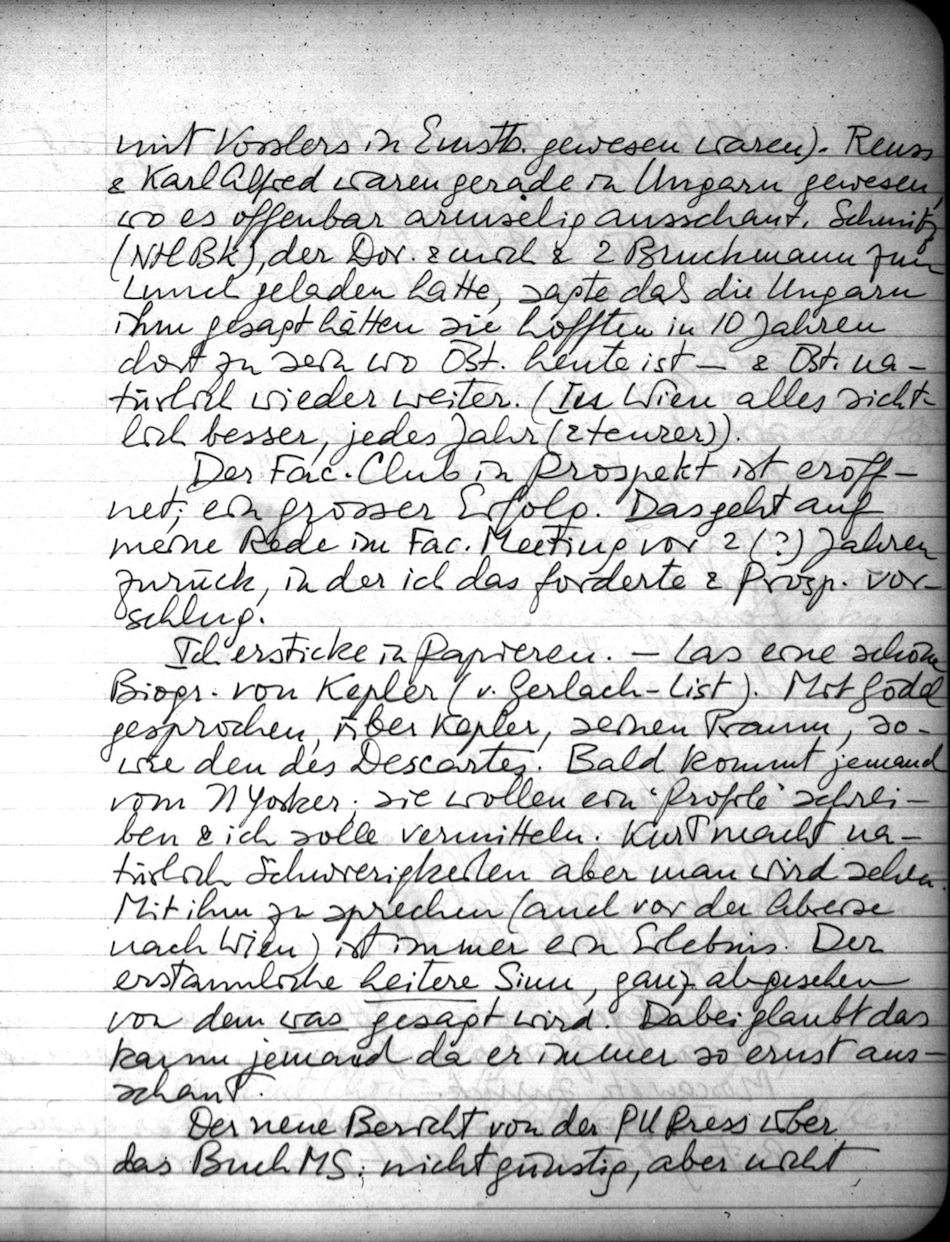 mit Vosslers in Ernstb. gewesen waren). Reuss
& Karl Alfred waren gerade in Ungarn gewesen,
wo es offenbar armselig ausschaut. Schmitz
(NHBk), der Dor. & mich & 2 Bruckmann zum
Lunch geladen hatte, sagte daß die Ungarn
ihm gesagt hätten sie hofften in 10 Jahren
dort zu sein wo Öst. heute ist — & Öst. na-
türlich wieder weiter. (In Wien alles sicht-
lich besser, jedes Jahr (& teurer)).
Der Fac. Club in Prospekt ist eröff-
net; ein grosser Erfolg. Das geht auf
meine Rede im Fac. Meeting vor 2 (?) Jahren
zurück, in der ich das forderte & Prosp. vor-
schlug.
Ich ersticke in Papieren. — Las eine schöne
Biogr. von Kepler (v. Gerlach-List). Mit Gödel
gesprochen, über Kepler, seinen Traum, so-
wie den des Descartes. Bald kommt jemand
vom NYorker; sie wollen ein 'Profile' schrei-
ben & ich solle vermitteln. Kurt macht na-
türlich Schwierigkeiten aber man wird sehen.
Mit ihm zu sprechen (auch vor der Abreise
nach Wien) ist immer ein Erlebnis. Der
erstaunliche heitere Sinn, ganz abgesehen
von dem was gesagt wird. Dabei glaubt das
kaum jemand da er immer so ernst aus-
schaut.
Der neue Bericht von der PU Press über
das Buch MS: nicht günstig, aber nicht